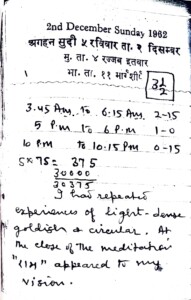 2nd December Sunday 1962
अगहन सुदी ५ रविवार ता. २ दिसम्बर
मु. ता. ४ रज्जब इतवार
भा. ता. ११ मार्गशीर्ष
3½
3.45 Am. To 6.15 Am. 2-15
5 P.M. To 6 P.M. 1-0
10 P.M To 10.15 P.M 0-15
5 x 75 = 375
30000
30375
I had repeated
experiences of light-dense
goldish & circular. At
the close of the meditation
"राम" appeared to my
vision.